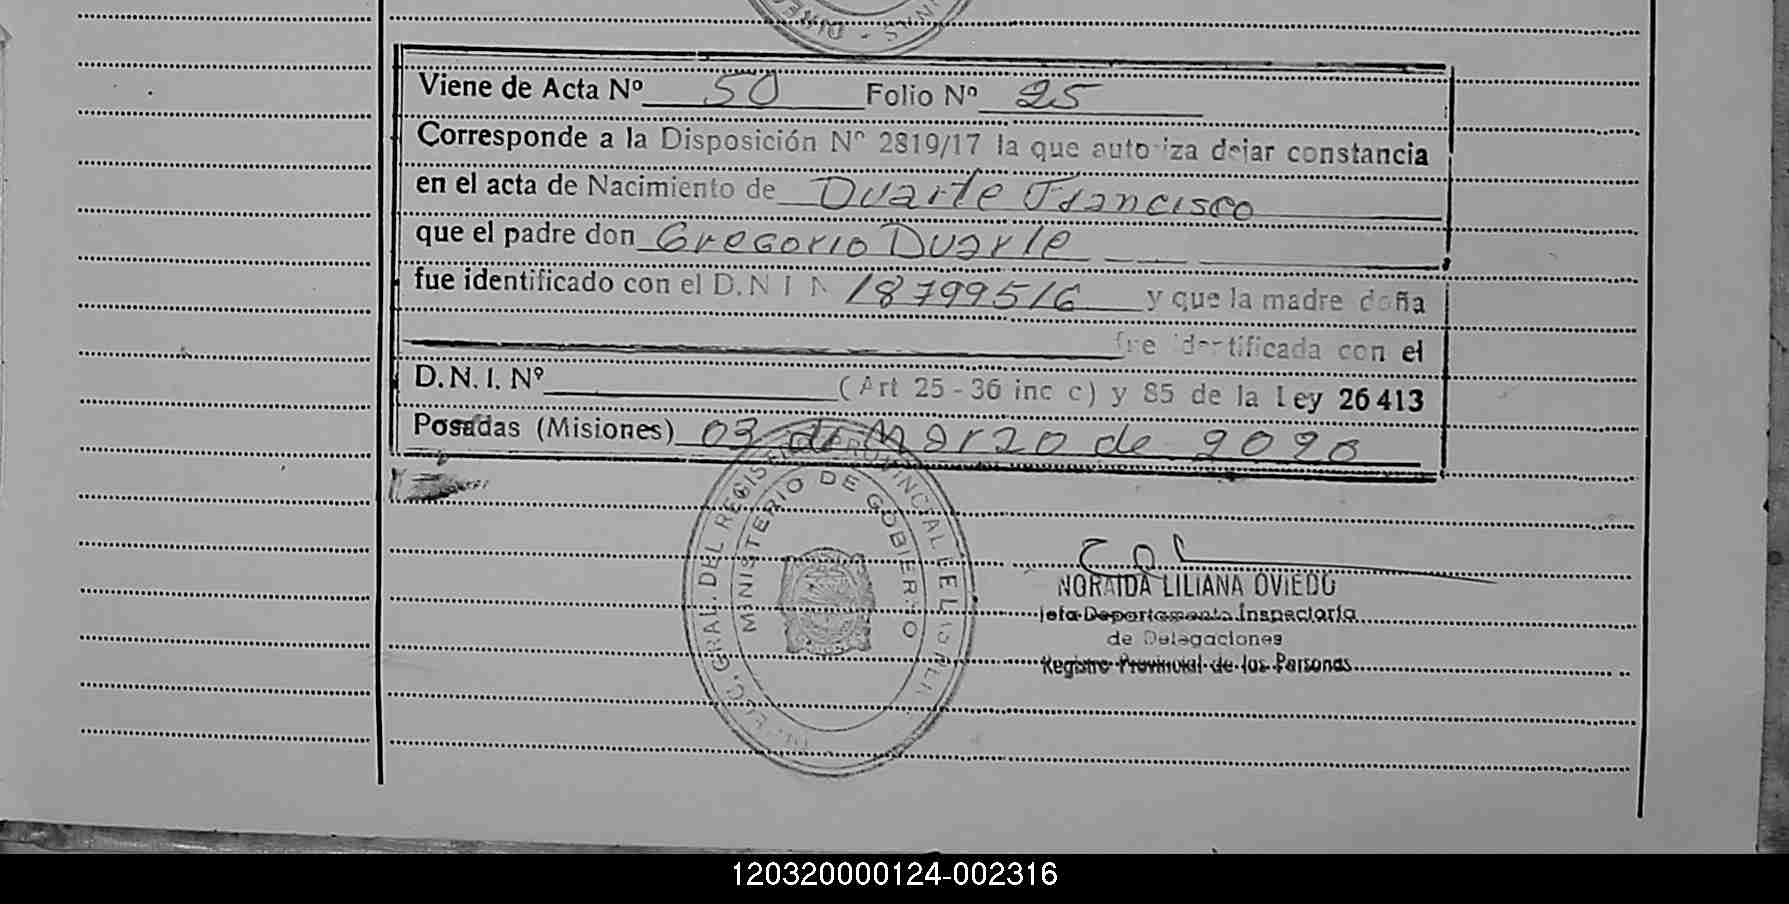 Viene de Acta Nº 50 Folio Nº 25
Corresponde a la Disposición Nº 2819/17 la que autoriza dejar constancia
en el acta de Nacimiento de Duarte Francisco
que el padre don Gregorio Duarte
fue identificado con el D.N.I N 18799516 y que la madre doña
fue identificada con el
D.N.I. Nº (Art 25-36 inc c) y 85 de la Ley 26413
Posadas (Misiones) 03 de Marzo de 2020
GRAL. DEL REGISTRO PROVINCIAL DE
MINISTERIO DE GOBIERNO
NORAIDA LILIANA OVIEDO
Jefa Departamento Inspectoría
de Delegaciones
Registro Provincial de las Personas
120320000124-002316